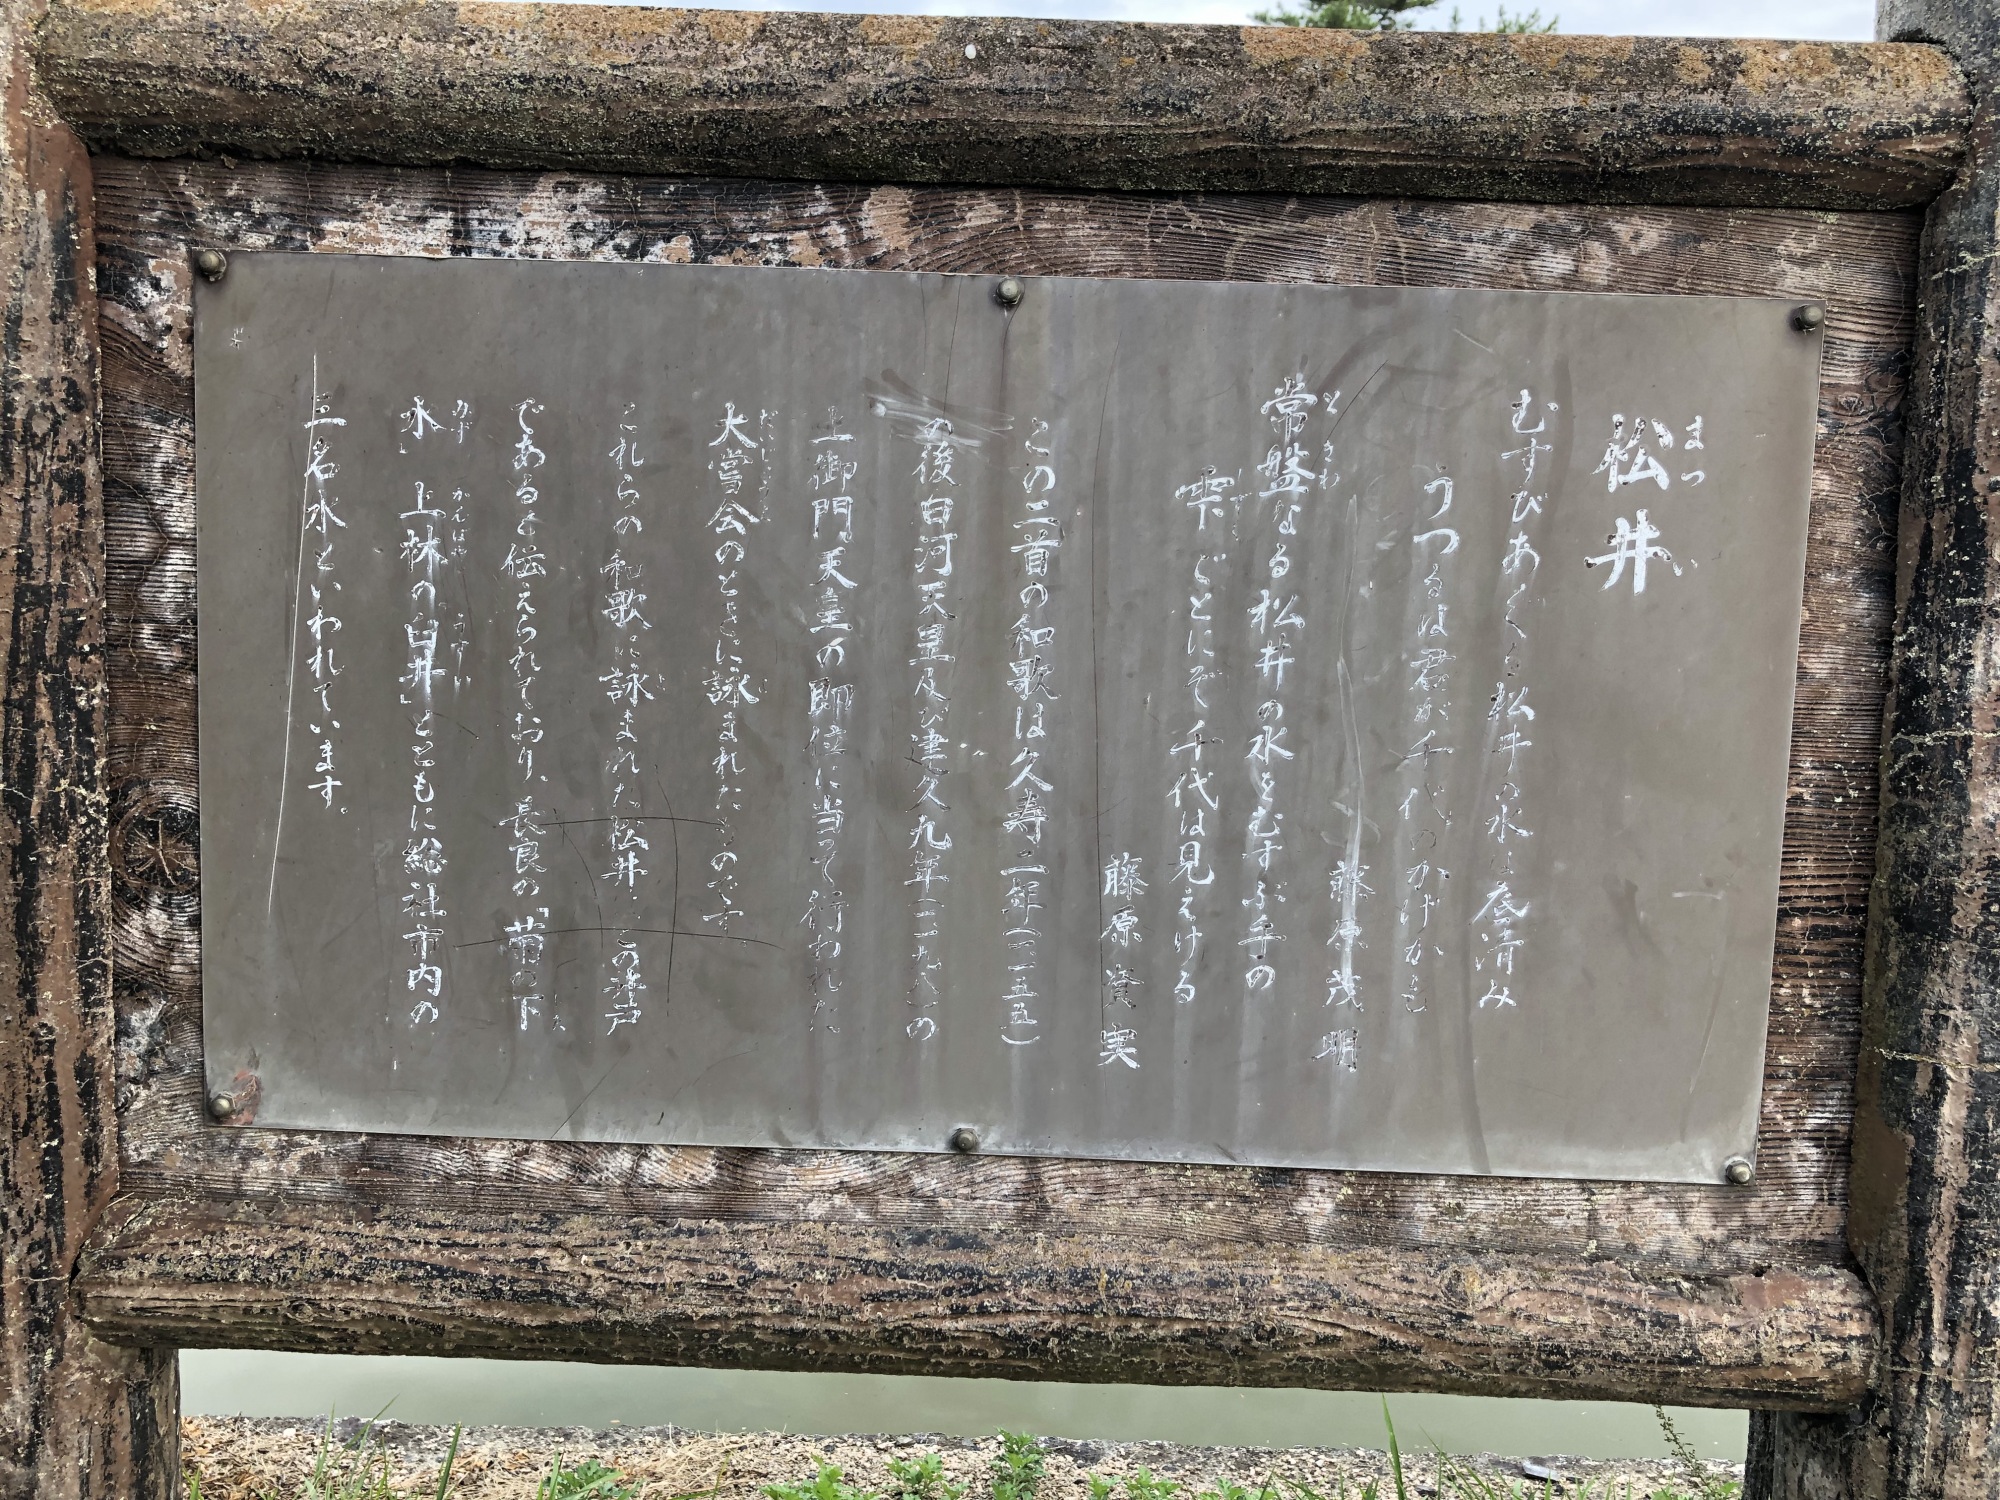 松井
まつい
むすびあぐる松井の水は底清み
うつるは君が千代のかげかも
藤原茂明
常盤なる松井の水をむすぶ手の
ときわ
雫ごとにぞ千代は見えける
しずく
藤原資実
この二首の和歌は久寿二年(一一五五)
の後白河天皇及び建久九年(一一九八)の
土御門天皇の即位に当って行われた
大嘗会のときに詠まれたものです。
だいじょうえ
よ
これらの和歌に詠まれた松井はこの井戸
よ
であると伝えられており、長良の「菊の下
した
水」上林の「臼井」とともに総社市内の
みず
かんばやし
うすい
三名水といわれています。